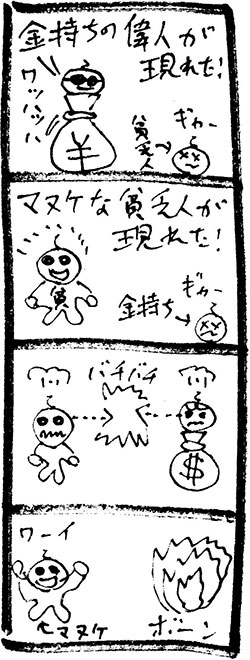 金持ちの偉人が
現れた!
ワッハッハ
¥
貧乏人→
ギャー
マヌケな貧乏人が
現れた!
貧
ギャー
金持ち→
バチバチ
$
ワーイ
↖マヌケ
ボーン